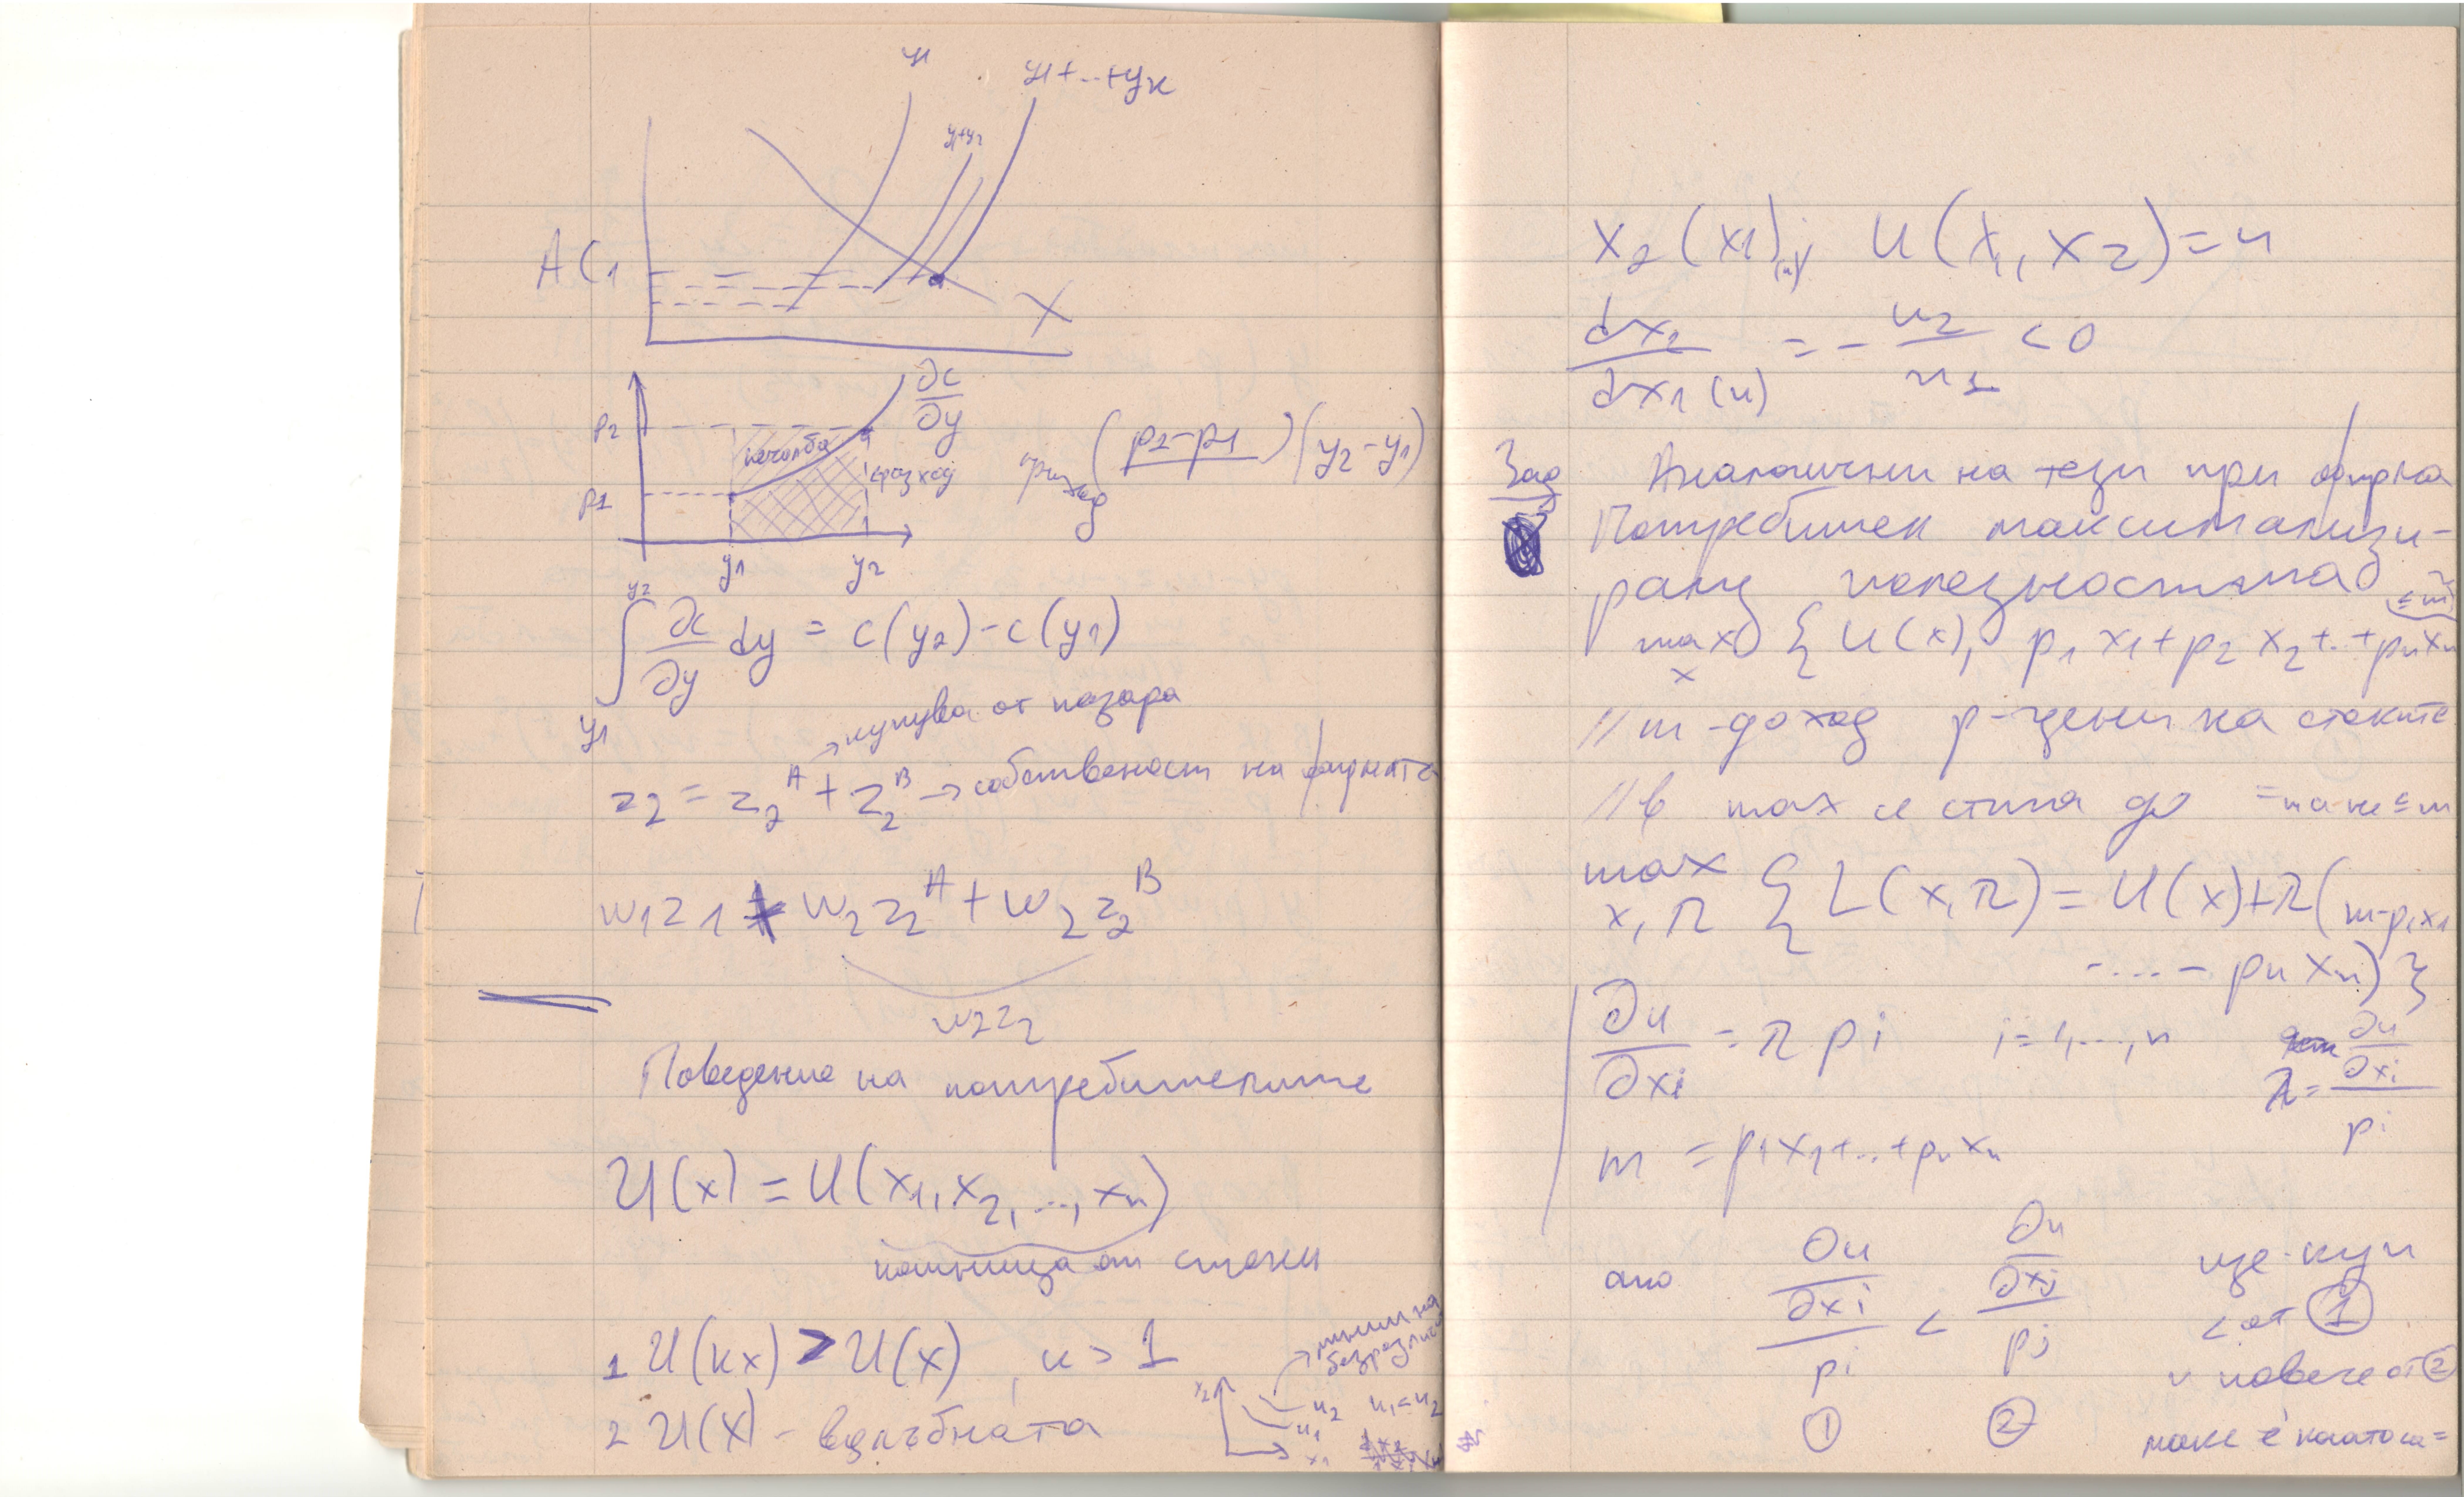 y1
y1+...+yк
y1+y2
AC1
X
∂c/∂y
p2
печалба
разход
приход (p2-p1)(y2-y1)
p1
y1 y2
∫ y1 y2 ∂c/∂y dy = c(y2)-c(y1)
→ купува от пазара
z2 = z2^A + z2^B → собственост на фирмата
w1z1 + w2z2^A + w2z2^B
w2z2
Поведение на потребителите
U(x) = U(x1,x2,...,xn)
кошница от стоки
1 U(кx) > U(x), к > 1
линии на
безразличие
2 U(x) - вдлъбната
x2 u2 u1<u2
u1
x1
x2(x1)(u) U(x1,x2)=u
dx2/dx1(u) = - u2/u1 < 0
Зад Аналогични на тези при фирма
Потребител максимализи-
ращ полезността
max x { U(x), p1x1+p2x2+..+pnxn ≤m
// m-доход p-цени на стоките
// в max се стига до =m а не ≤m
max x,λ { L(x,λ) = U(x)+λ(m-p1x1
....- pnxn) }
∂u/∂xi = λpi i=1,...,n
λ = ∂u/∂xi / pi
m = p1x1+..+pnxn
ако ∂u/∂xi / pi < ∂u/∂xj / pj ще купи
< от ①
и повече от ②
① ② макс е когато са =